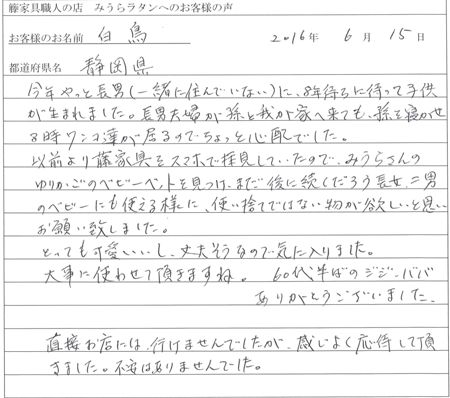 籐家具職人の店 みうらラタンへのお客様の声
お客様のお名前 白鳥 2016年 6月 15日
都道府県名 静岡県
今年やっと長男(一緒に住んでいない)に、8年待ちに待って子供
が生まれました。長男夫婦が孫と我が家へ来ても、孫を寝かせ
る時ワンコ達が居るのでちょっと心配でした。
以前より藤家具をスマホで拝見していたので、みうらさんの
ゆりかごのベビーベットを見つけ、まだ後に続くだろう長女、二男
のベビーにも使える様に、使い捨てではない物が欲しいと思い
お願い致しました。
とっても可愛いいし、丈夫そうなので気に入りました。
大事に使わせて頂きますね。 60代半ばのジジ・ババ
ありがとうございました。
直接お店には、行けませんでしたが、感じよく応待して頂
きました。不安はありませんでした。